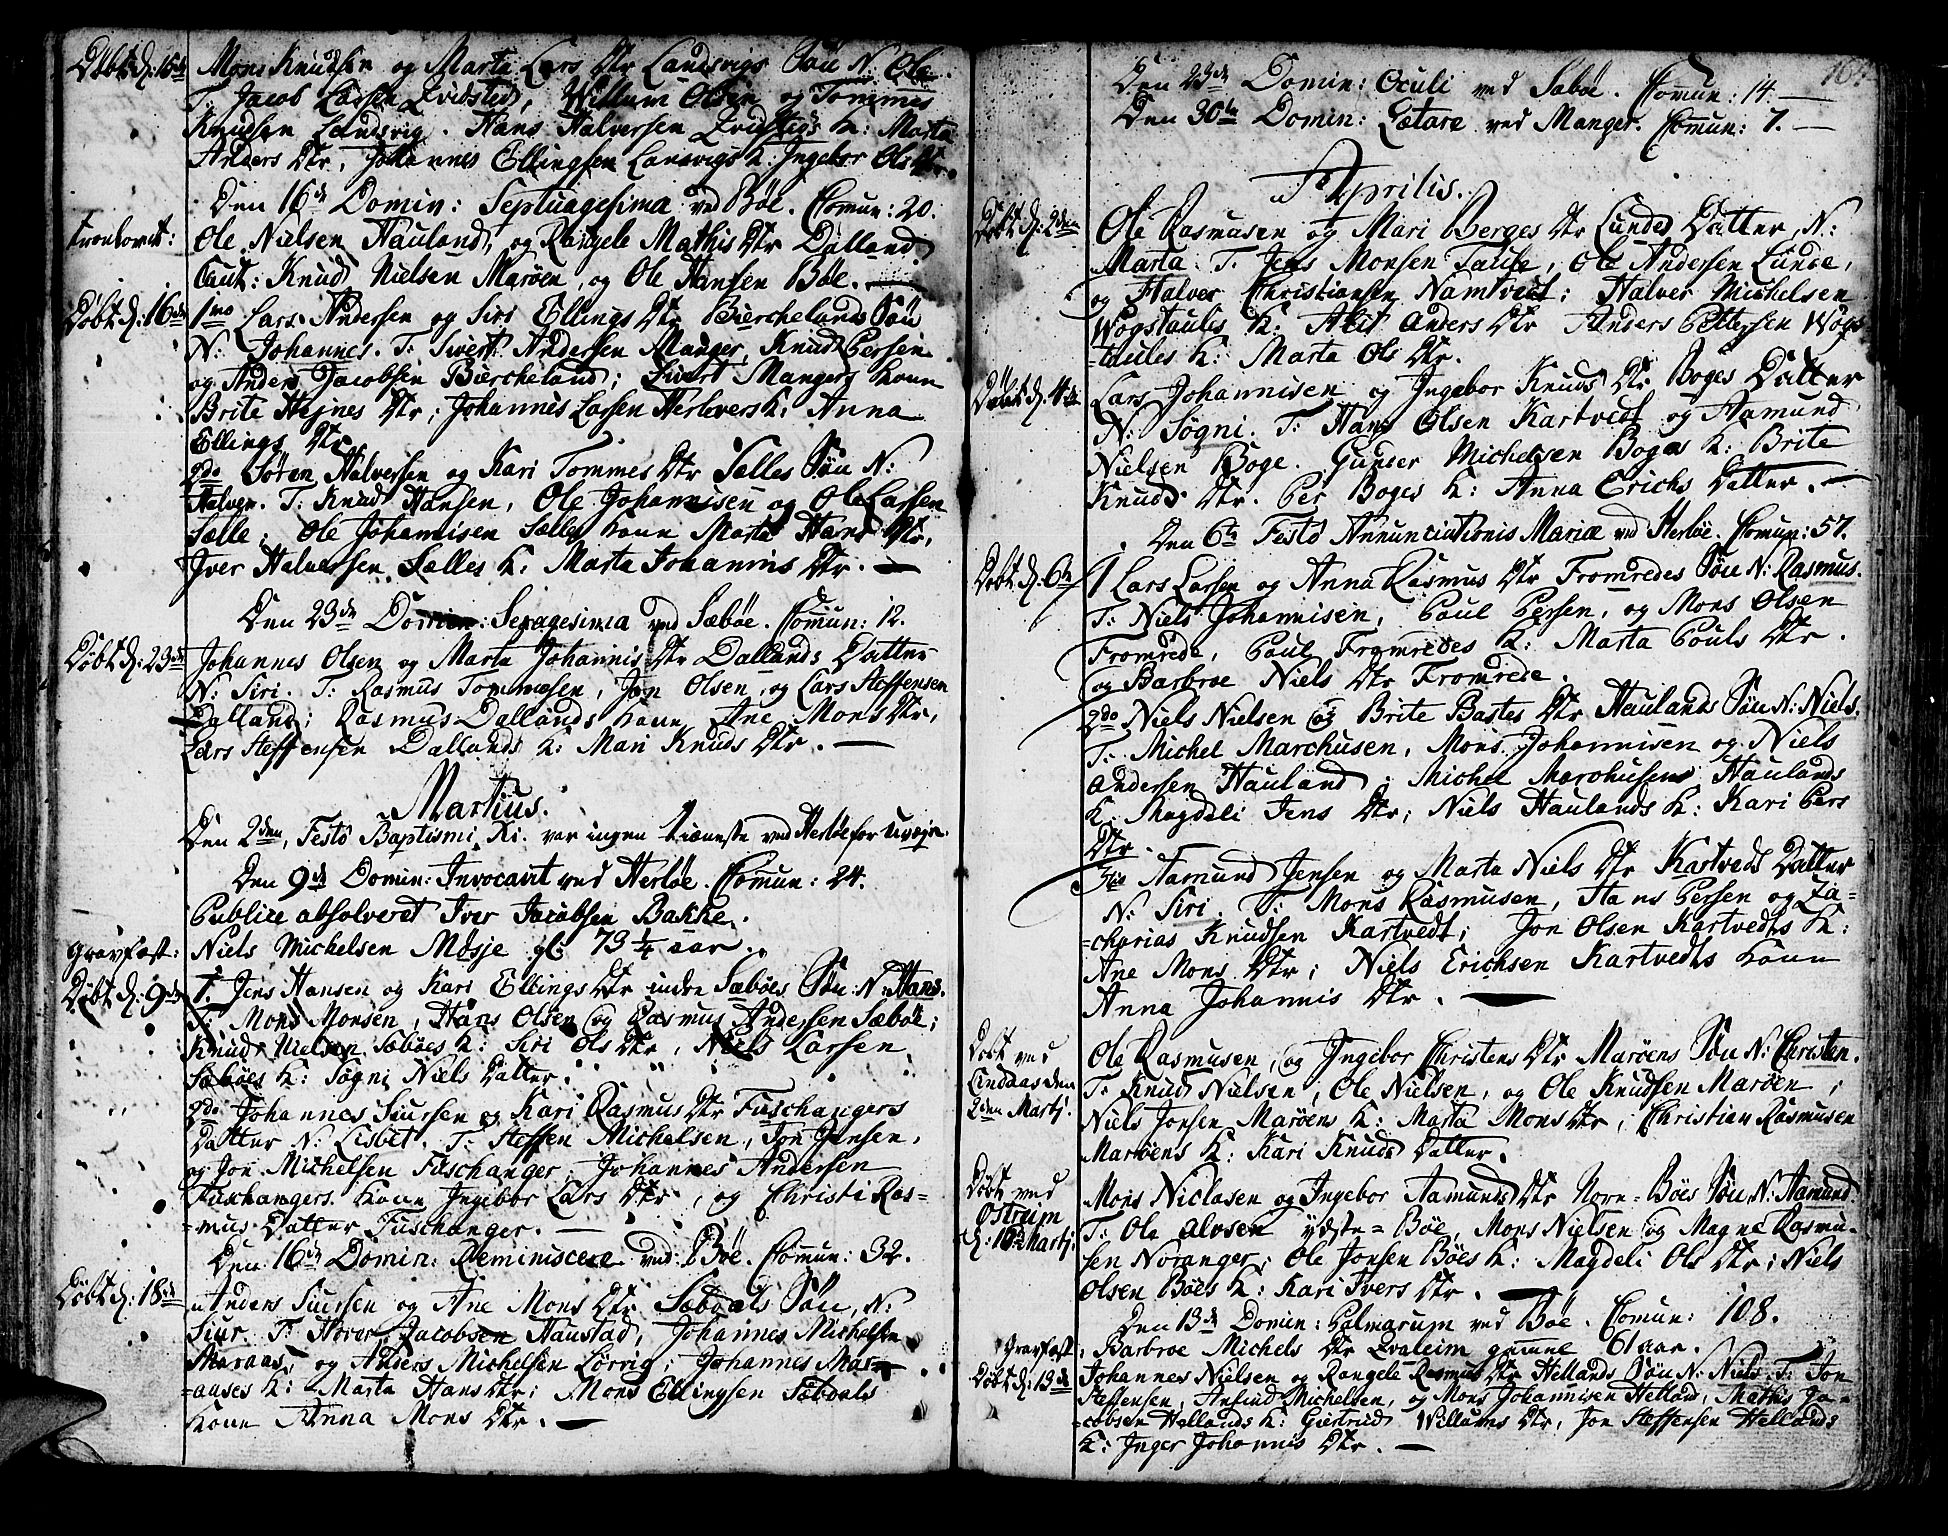 Döbt d: 15de
Mons Knudsen og Marta Lars Dtr Landsvigs Søn N. Ole.
T. Jacob Larsen Evidsted, Willum Olsen og Tommes
Knudsen Landsvig. Hans Halversen Evidstigs K: Marta
Anders Dtr, Johannes Ellingsen Lansvigs K: Ingebor Ols Dtr.
Den 16de Domin: Septuagesima ved Bøe. Comun: 20.
Troelovet:
Ole Nielsen Hauland, og Rangele Mathis Dtr Dalland.
Caut: Knud Nielsen Marøen, og Ole Hansen Bøe.
Döbt d: 16de
1mo Lars Andersen og Siri Ellings Dtr Biercheland Søn
N: Johannes. T: Sivert Andersen Manger, Knud Persen
og Anders Jacobsen Biercheland; Sivert Mangers Kone
Brite Hejnes Dtr; Johannes Larsen Herlovers K: Anna
Ellings Dtr
2do Søren Halversen og Kari Tommes Dtr Sælles Søn N:
Halver. T: Knud Hansen, Ole Johannisen og Ole Larsen
Sælle; Ole Johannisen Sælles Kone Marta Hans Dtr,
Iver Halversen Sælles K: Marta Johannis Dtr.
Den 23de Domin: Sexagesima ved Sæbøe. Comun: 12.
Döbt d: 23de
Johannes Olsen og Marta Johannis Dtr Dallands Datter
N: Siri. T: Rasmus Tommesen, Jon Olsen, og Lars Steffensen
Dalland; Rasmus Dallands Kone Ane Mons Dtr,
Lars Steffensen Dallands K: Mari Knuds Dtr.
Martius.
Den 2den, Festo Baptismi Xi. var ingen tieneste ved Herløe for uvejr.
Den 9de Domin: Invocavit ved Herløe. Comun: 24.
Publice absolveret Iver Jacobsen Bakke.
Gravfæst:
Niels Michelsen Møsje gl: 73 1/4 aar.
Döbt d: 9de
1. Jens Hansen og Kari Ellings Dtr indre Sæbøes Søn N: Hans.
T: Mons Monsen, Hans Olsen og Rasmus Andersen Sæbøe;
Knud Nielsen Sæbøes K: Siri Ols Dtr, Niels Larsen
Sæbøes K: Søgni Niels Datter.
2do Johannes Siursen og Kari Rasmus Dtr Fuschangers
Datter N: Lisbet. T: Steffen Michelsen, Jon Jensen,
og Jon Michelsen Fuschanger; Johannes Andersen
Fuschangers Kone Ingebor Lars Dtr, og Christi Ras=
=mus Datter Fuschanger.
Den 16de Domin: Reminiscere ved Bøe. Comun: 32.
Döbt d: 18de
Anders Siursen og Ane Mons Dtr Sæbdals Søn, N:
Siur. T: Haver Jacobsen Haustad, Johannes Michelsen
Maraas, og Anders Michelsen Lörvig; Johannes Mar=
=aases K: Marta Hans Dtr; Mons Ellingsen Sæbdals
Kone Anna Mons Dtr.
164.
Den 23de Domin: Oculi ved Sæbøe. Comun: 14
Den 30te Domin: Lætare ved Manger. Comun: 7.
Aprilis.
Döbt d: 2den
Ole Rasmusen og Mari Berges Dtr Lundes Datter, N:
Marta. T: Jens Monsen Taule, Ole Andersen Lunde,
og Halver Christiansen Namtvedt; Halver Michelsen
Wogstaules K: Alit Anders Dtr Anders Pettersen Wogs=
=taules K: Marta Ols Dtr.
Döbt d: 4de
Lars Johannisen og Ingebor Knuds Dtr Boges Datter
N: Søgni. T: Hans Olsen Kartvedt og Aamund
Nielsen Boge. Gunder Michelsen Boges K: Brite
Knuds Dtr. Per Boges K: Anna Erichs Datter.
Den 6te Festo Annunciationis Mariæ ved Herløe. Comun: 57.
Döbt d: 6te
1 Lars Larsen og Anna Rasmus Dtr Fromredes Søn N: Rasmus.
T: Niels Johannisen, Poul Persen, og Mons Olsen
Fromrede, Poul Fromredes K: Marta Pouls Dtr.
og Barbroe Niels Dtr Fromrede.
2do Niels Nielsen og Brite Bastes Dtr Haulands Søn N: Niels.
T: Michel Marchusen, Mons Johannisen og Niels
Andersen Hauland; Michel Marchusens Haulands
K: Magdeli Jens Dtr; Niels Haulands K: Kari Pers
Dtr.
3tio Aamund Jensen og Marta Niels Dtr Kartveds Datter
N: Siri. T: Mons Rasmusen, Hans Persen og Za=
=charias Knudsen Kartvedt; Jon Olsen Kartvedts K:
Ane Mons Dtr; Niels Erichsen Kartvedts Kone
Anna Johannis Dtr.
Döbt ved
Lindaas den
2den Martj.
Ole Rasmusen, og Ingebor Christens Dtr Marøens Søn N: Christen.
T: Knud Nielsen, Ole Nielsen, og Ole Knudsen Marøen;
Niels Jonsen Marøens K: Marta Mons Dtr; Christian Rasmusen
Marøens K: Kari Knuds Datter.
Döbt ved
Ostreim
d: 16de Martj.
Mons Niclasen og Ingebor Aamunds Dtr Norn=Bøes Søn, N: Aamund.
T: Ole Alvsen ydste=Bøe, Mons Nielsen og Magne Rasmu=
sen Noranger; Ole Jonsen Bøes K: Magdeli Ols Dtr; Niels
Olsen Bøes K: Kari Ivers Dtr.
Den 13de Domin: Palmarum ved Bøe. Comun: 108.
Gravfæst:
Barbroe Michels Dtr Qvaleim gamme 61 aar.
Döbt d: 13de
Johannes Nielsen og Rangele Rasmus Dtr Hellands Søn N: Niels. T: Jon
Steffensen, Anfind Michelsen, og Mons Johannisen Helland; Mathis Ja=
=cobsen Hellands K: Giertrud Willums Dtr, Jon Steffensen Hellands
K: Inger Johannis Dtr.